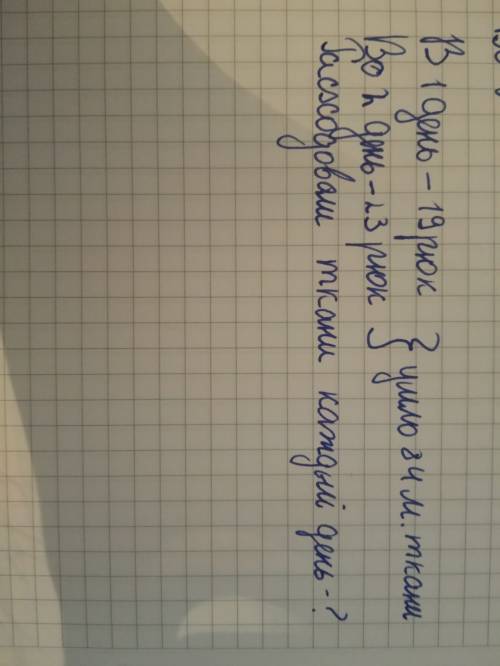 В 1 день - 19 рюк
Во 2 день - 23 рюк } ушло 84 м. ткани
Расходовали ткани каждый день - ?